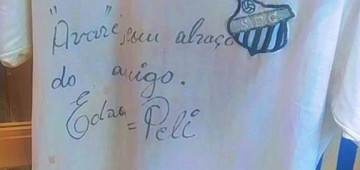 "Avaré", um abraço
do amigo.
Edson = Pelé
SFC